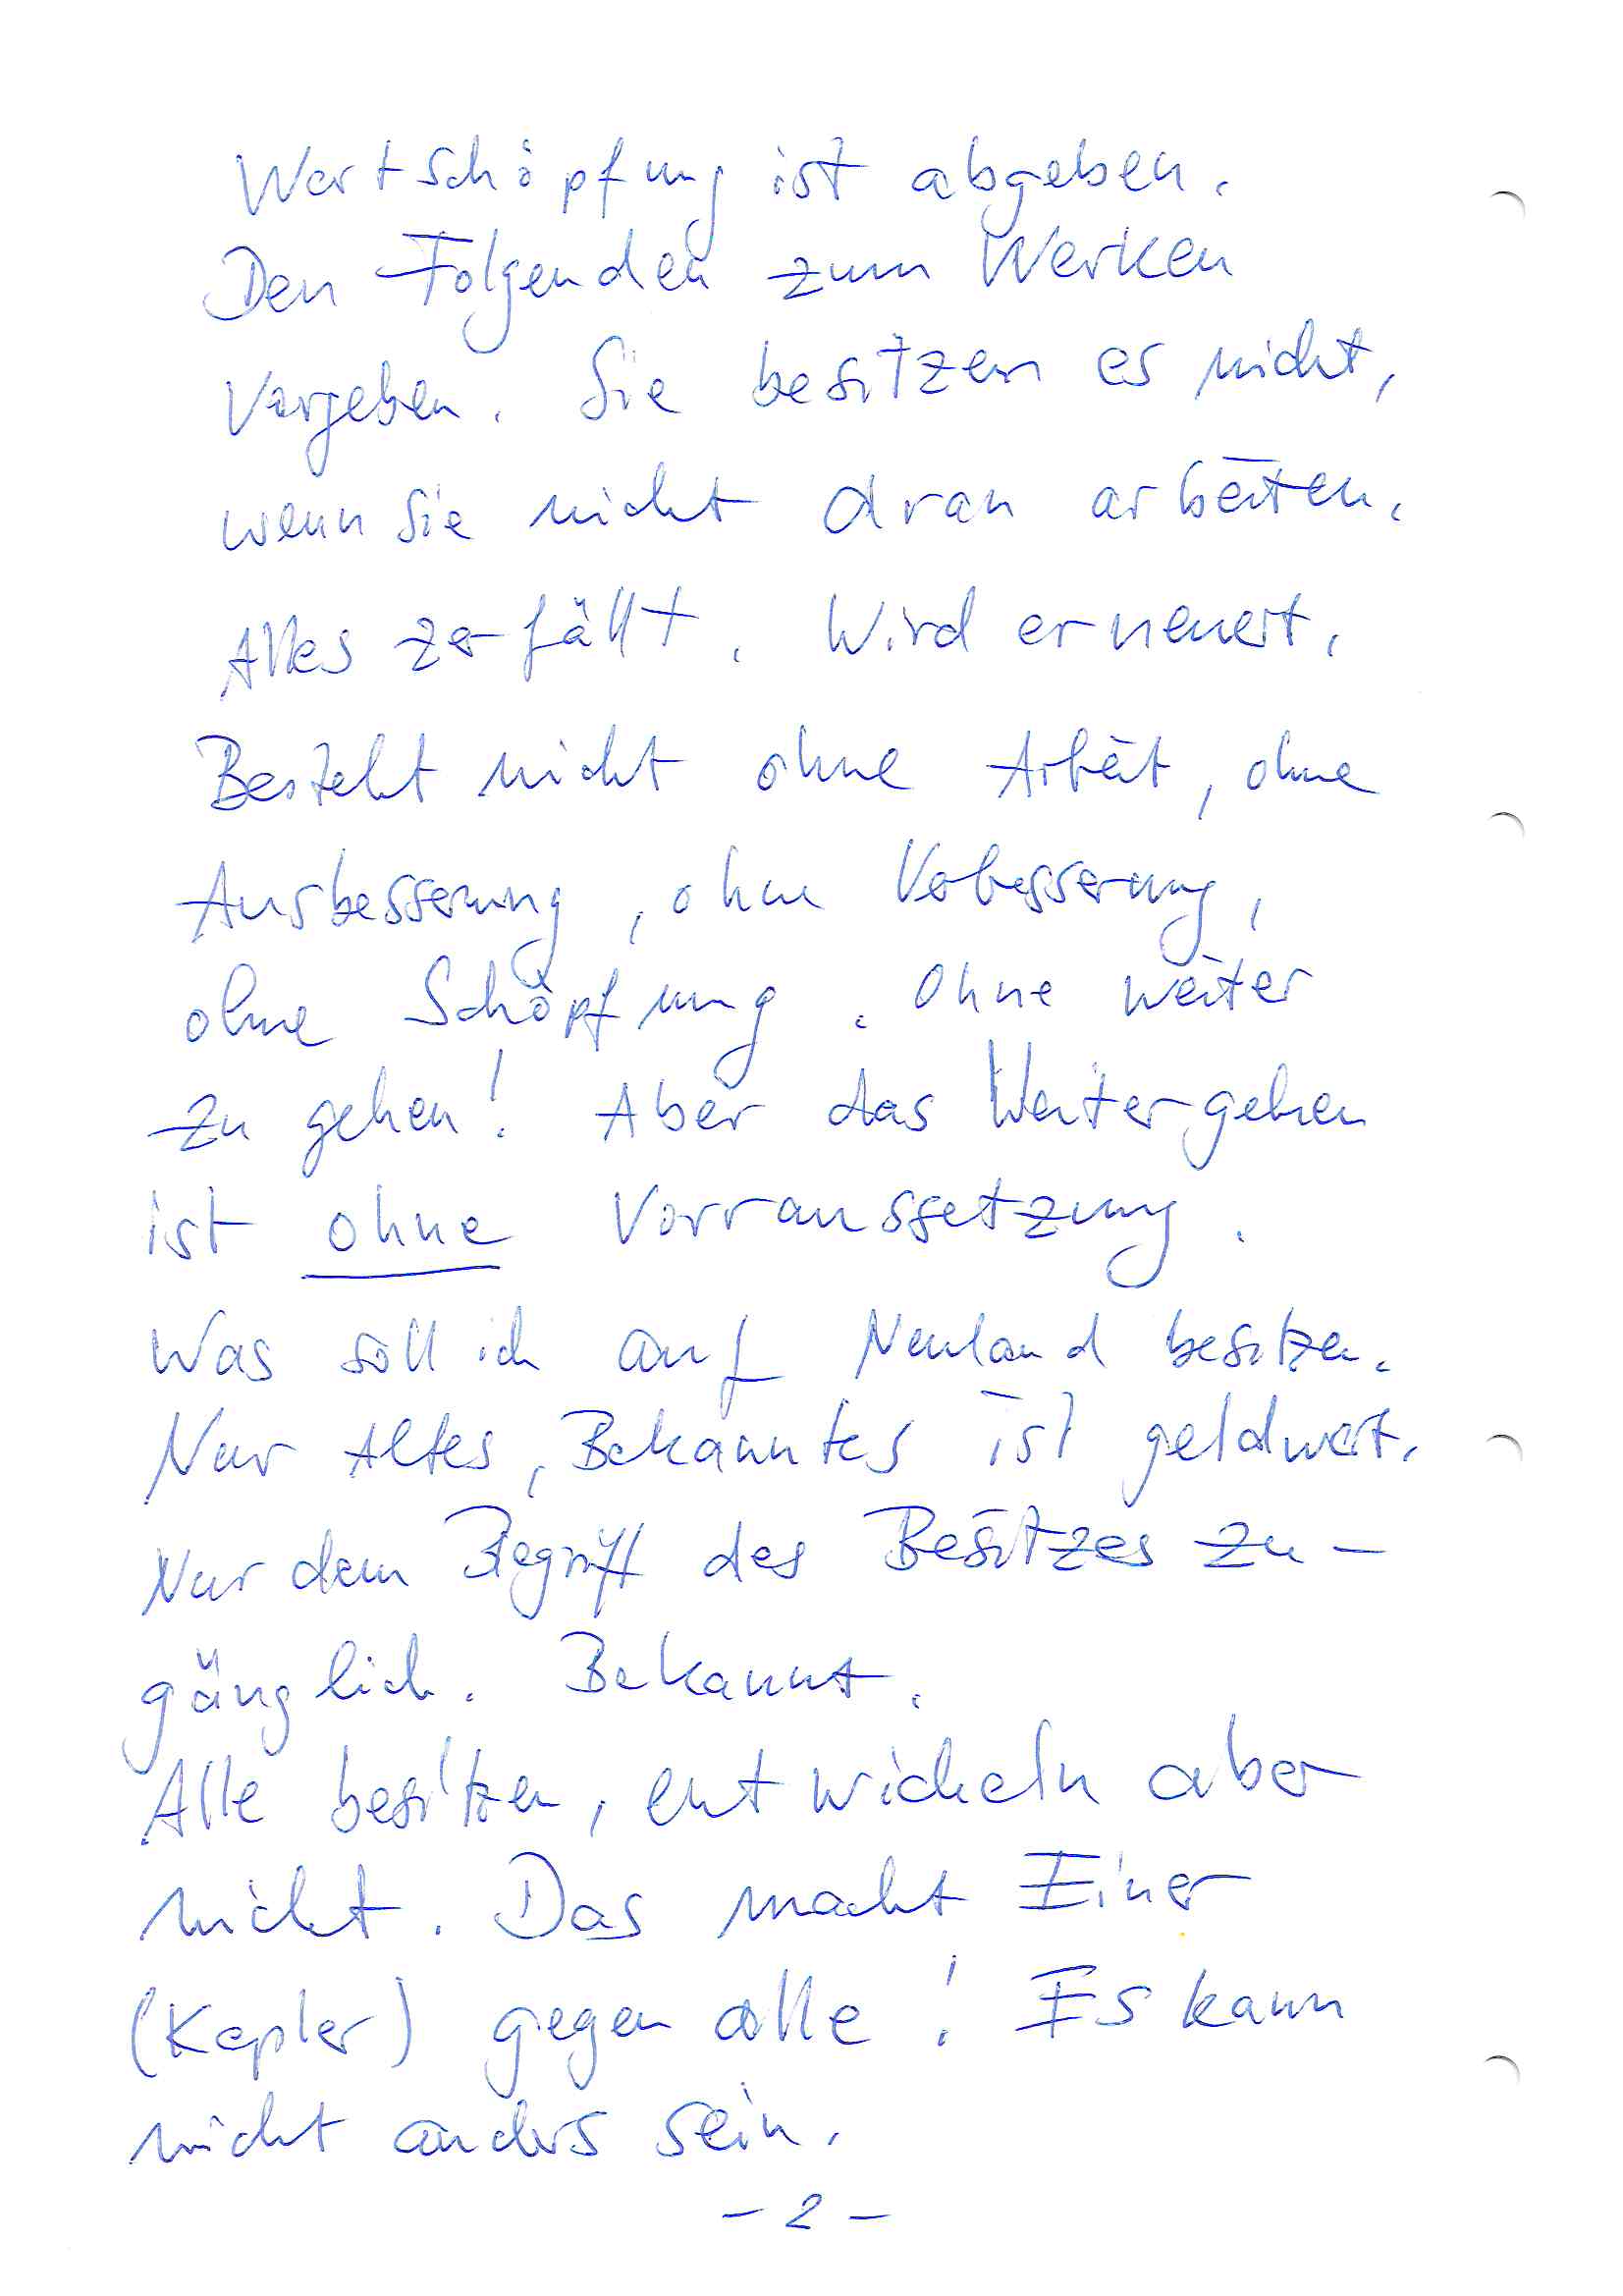 Wertschöpfung ist abgeben.
Den Folgenden zum Werken
Vergeben. Sie besitzen es nicht,
wenn sie nicht dran arbeiten.
Alles zerfällt. Wird erneuert.
Besteht nicht ohne Arbeit, ohne
Ausbesserung, ohne Verbesserung,
ohne Schöpfung. Ohne weiter
zu gehen! Aber das Weitergehen
ist ohne Vorraussetzung.
Was soll ich auf Neuland besitzen.
Nur Altes, Bekanntes ist geldwert.
Nur dem Begriff des Besitzes zu-
gänglich. Bekannt.
Alle besitzen, entwickeln aber
nicht. Das macht Einer
(Kepler) gegen alle! Es kann
nicht anders sein.
- 2 -